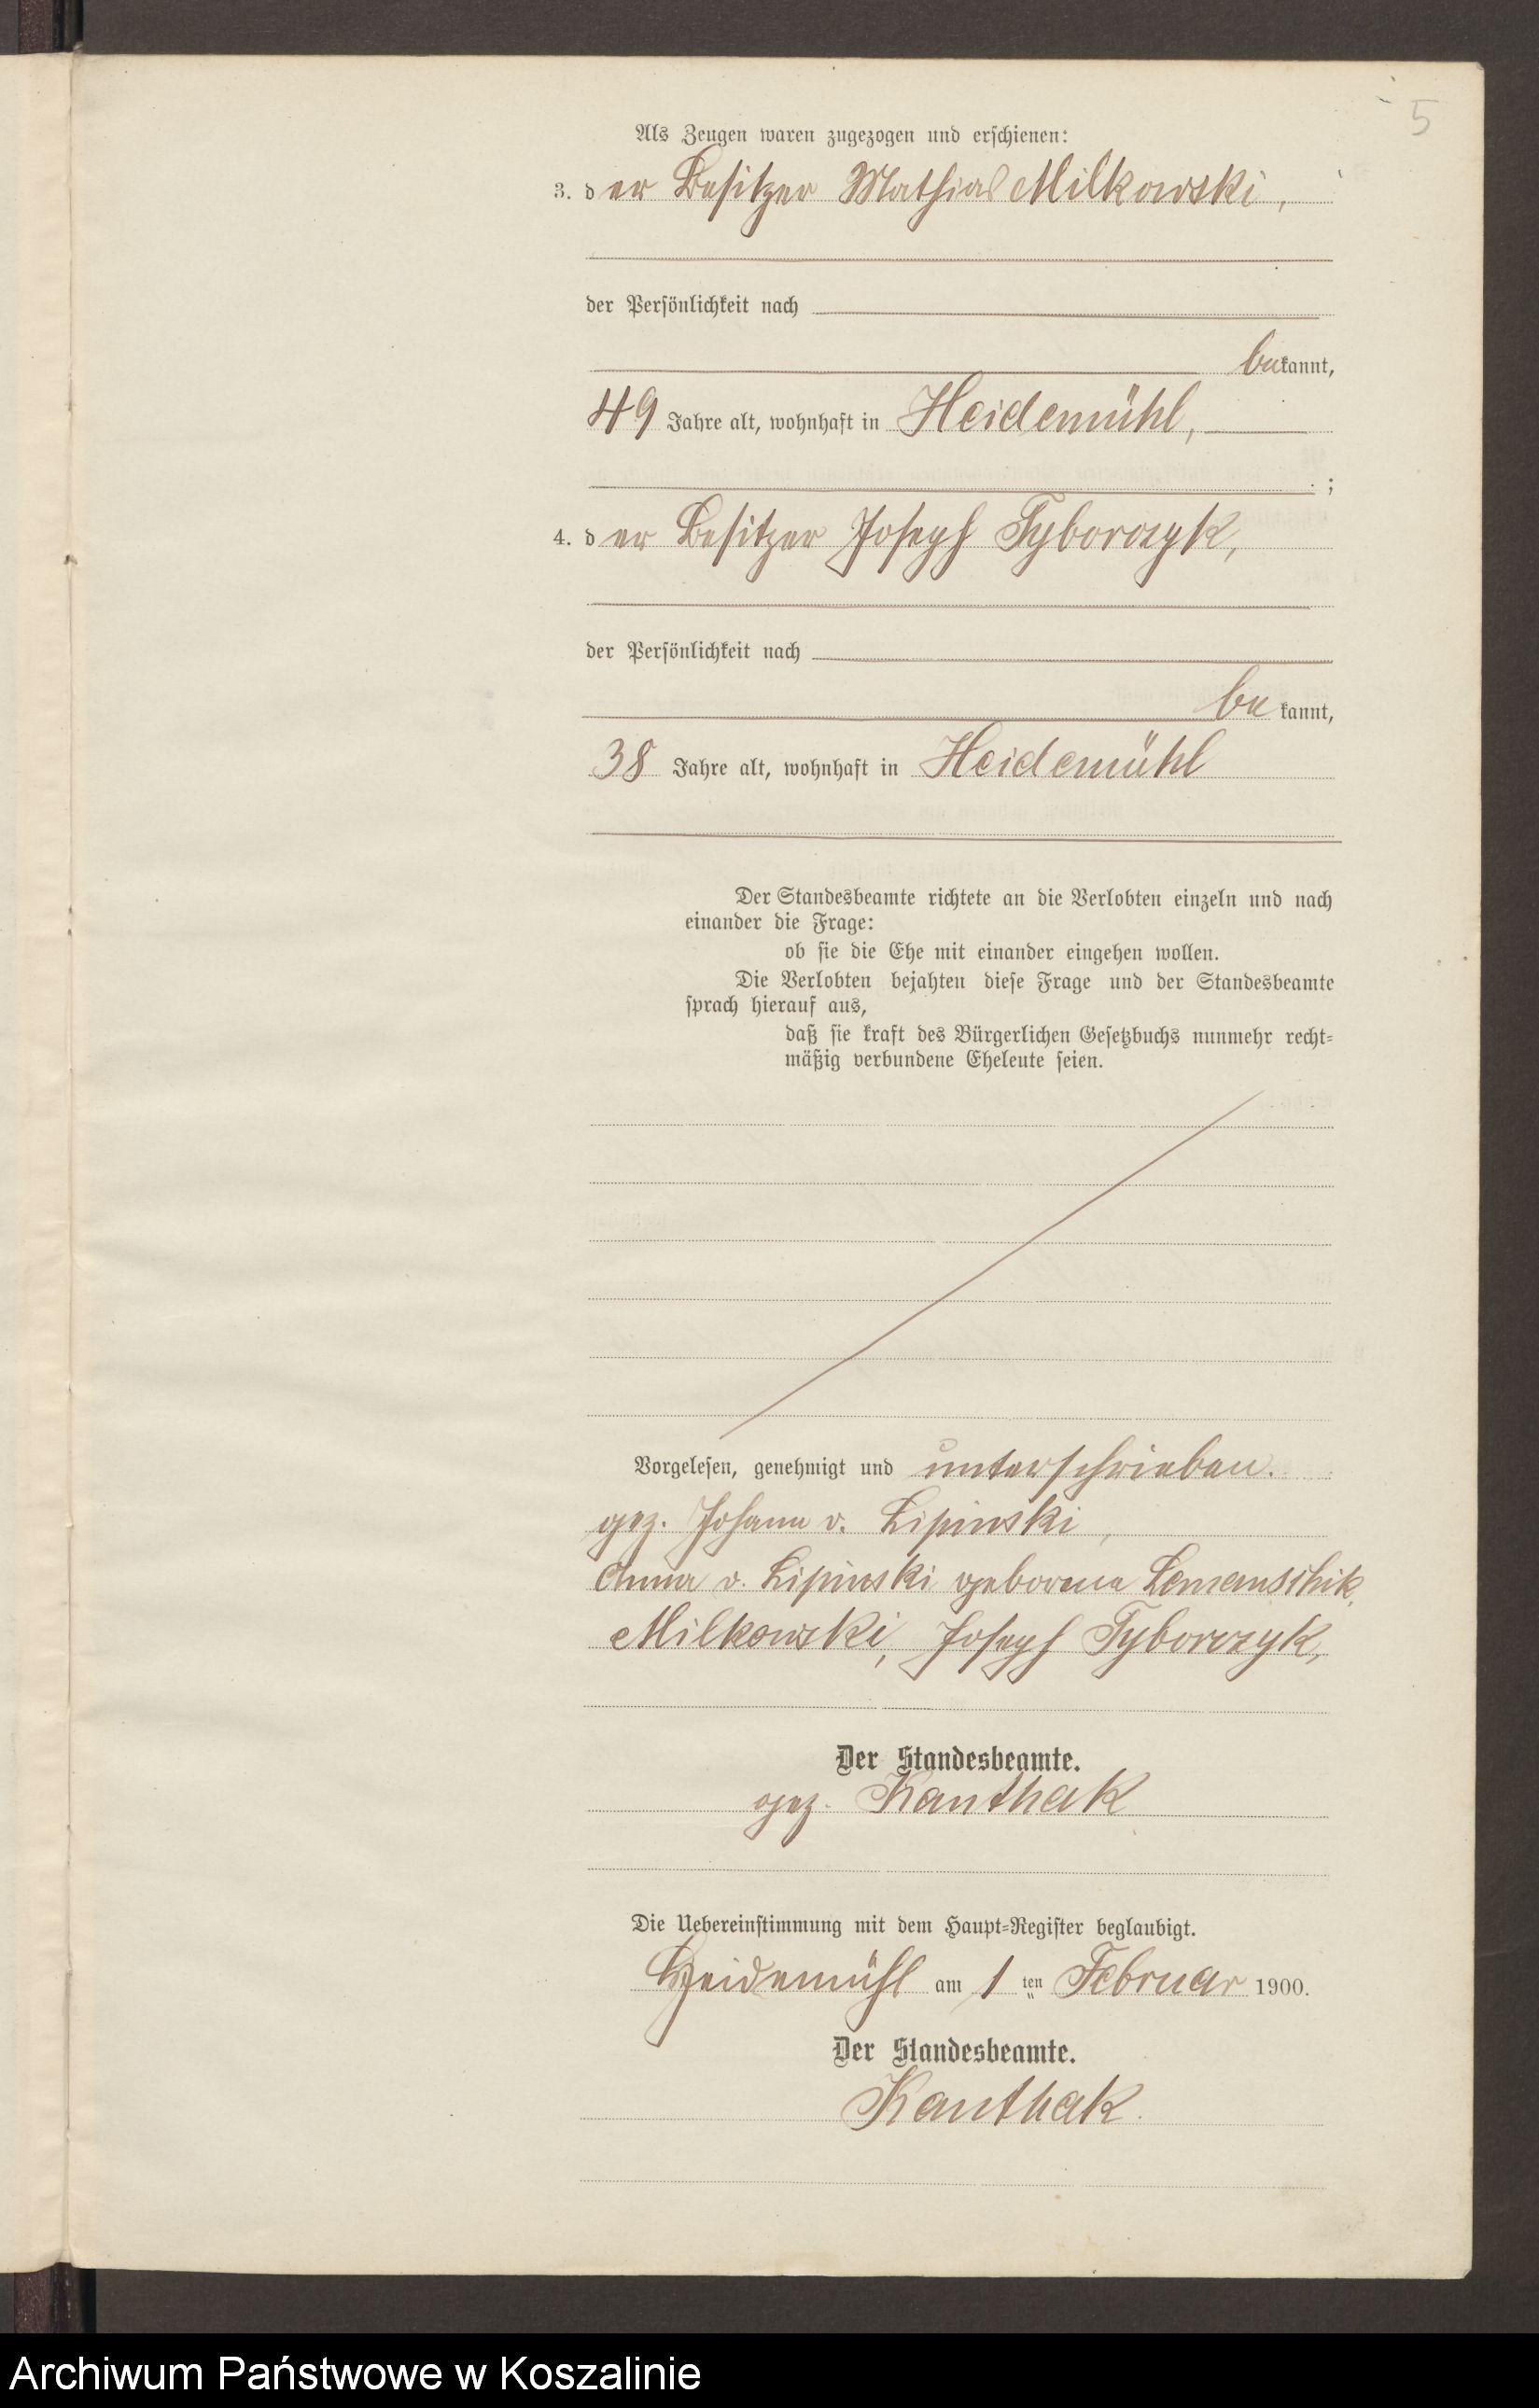 5
Als Zeugen waren zugezogen und erschienen:
3. der Besitzer Mathias Milkowski,
der Persönlichkeit nach
bekannt,
49 Jahre alt, wohnhaft in Heidemühl,
;
4. der Besitzer Joseph Tyborczyk,
der Persönlichkeit nach
bekannt,
38 Jahre alt, wohnhaft in Heidemühl
Der Standesbeamte richtete an die Verlobten einzeln und nach
einander die Frage:
ob sie die Ehe mit einander eingehen wollen.
Die Verlobten bejahten diese Frage und der Standesbeamte
sprach hierauf aus,
daß sie kraft des Bürgerlichen Gesetzbuchs nunmehr recht=
mäßig verbundene Eheleute seien.
Vorgelesen, genehmigt und unterschrieben.
gez. Johann v. Lipinski,
Anna v. Lipinski geborene Lemanschik,
Milkowski, Joseph Tyborczyk,
Der Standesbeamte.
gez. Kanthak
Die Uebereinstimmung mit dem Haupt=Register beglaubigt.
Heidemühl am 1 ten Februar 1900.
Der Standesbeamte.
Kanthak.
Archiwum Państwowe w Koszalinie